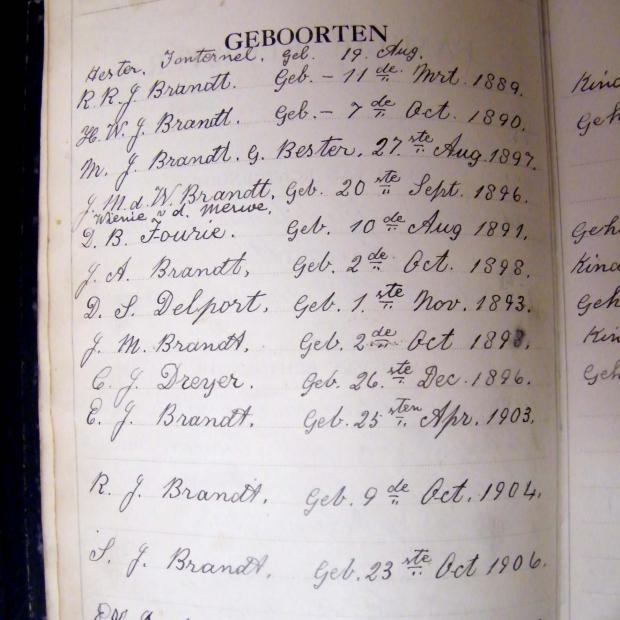 GEBOORTEN
Hester. Fonternel, Geb. 19. Aug.
R. R. J Brandt. Geb. - 11 de Mrt. 1889.
H. W. J Brandt. Geb. - 7 de Oct. 1890.
M. J Brandt. G. Bester. 27. ste Aug. 1897.
J. M. d. W. Brandt, Geb. 20 ste Sept. 1896.
Wienie v d. Merwe.
D. B. Fourie. Geb. 10 de Aug 1891.
J. A. Brandt, Geb. 2 de Oct. 1898.
D. S. Delport, Geb. 1. ste Nov. 1893.
J. M. Brandt, Geb. 2 de Oct 189
C. J. Dreyer. Geb. 26. ste Dec. 1896.
E. J. Brandt. Geb. 25 sten Apr. 1903.
R. J. Brandt. Geb. 9 de Oct. 1904.
S. J. Brandt. Geb. 23 ste Oct 1906.
Kin
Geh
Geh
Kin
Geh
Kin
Geh